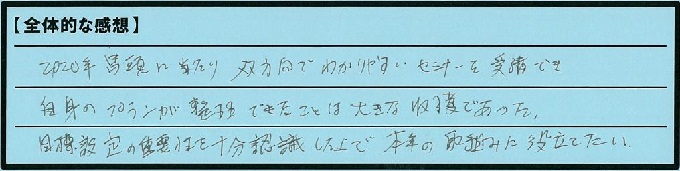 【全体的な感想】
2020年冒頭に当たり双方向でわかりやすいセミナーを受講でき
自身のプランが整理できたことは大きな収穫であった。
目標設定の重要性を十分認識した上で本年の取組みに役立てたい